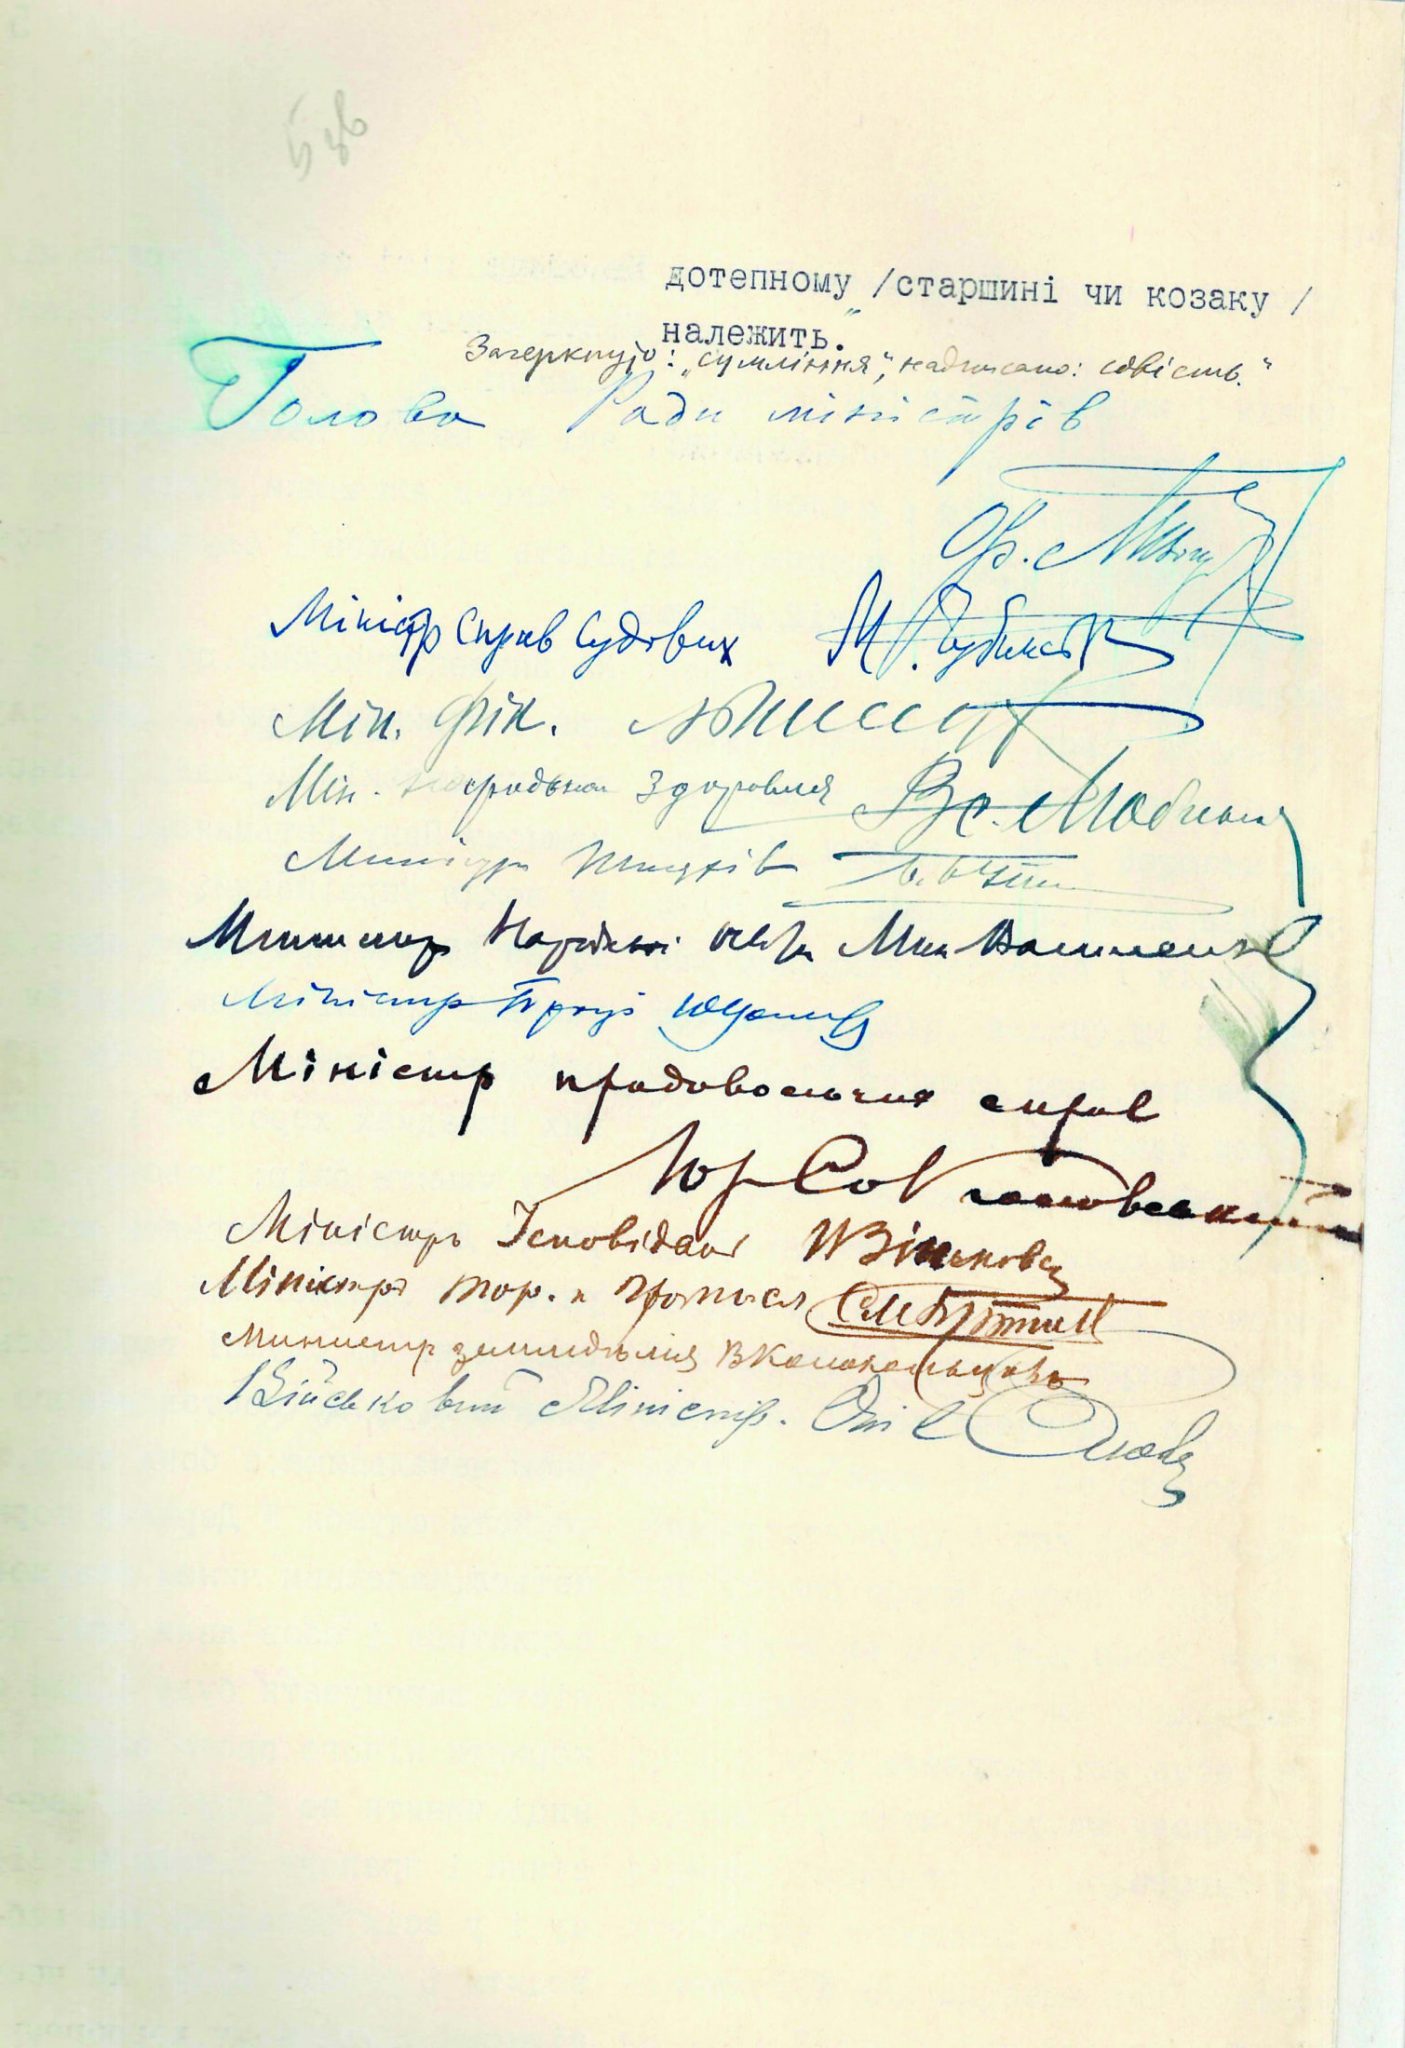 5зв
дотепному /старшині чи козаку /
належить."
Зачеркнуто: „сумління", надписано: совість."
Голова Ради міністрів
Ф. Лизогуб
Міністр Справ Судових М. Чубинський
Мін. фін. А Ржепецький
Мін. народнього здоровля Вс. Любинський
Міністр Шляхів Б. Бутенко
Министр Народньої осв. Мик Василенко
Міністр Праці Ю Вагнер
Міністр продовольчих справ
Юр Соколовський
Міністр Ісповідань В Зіньковський
Міністр тор. и промысл С М Гутник
Министр земледелия В Колокольцовъ
Військовий Міністр.